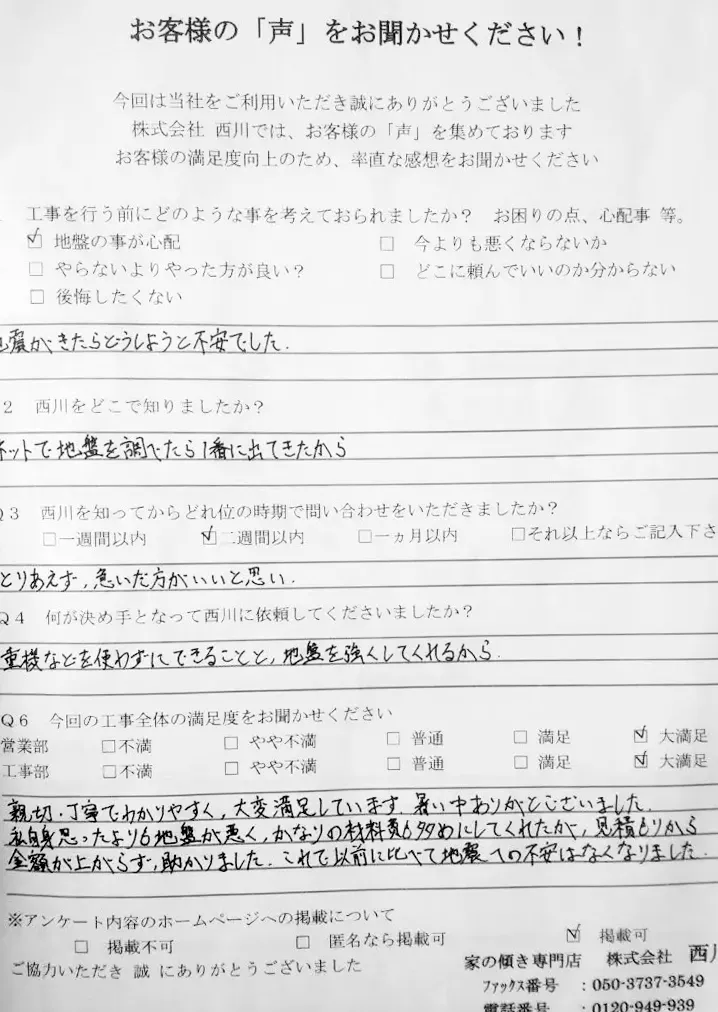 お客様の「声」をお聞かせください！
今回は当社をご利用いただき誠にありがとうございました
株式会社 西川では、お客様の「声」を集めております
お客様の満足度向上のため、率直な感想をお聞かせください
工事を行う前にどのような事を考えておられましたか？ お困りの点、心配事 等。
☑ 地盤の事が心配 □ 今よりも悪くならないか
□ やらないよりやった方が良い？ □ どこに頼んでいいのか分からない
□ 後悔したくない
地震がきたらどうしようと不安でした.
2 西川をどこで知りましたか？
ネットで地盤を調べたら1番に出てきたから
Q3 西川を知ってからどれ位の時期で問い合わせをいただきましたか？
□一週間以内 ☑二週間以内 □一ヵ月以内 □それ以上ならご記入下さ
とりあえず,急いだ方がいいと思い.
Q4 何が決め手となって西川に依頼してくださいましたか？
重機などを使わずにできることと,地盤を強くしてくれるから.
Q6 今回の工事全体の満足度をお聞かせください
営業部 □不満 □ やや不満 □ 普通 □ 満足 ☑ 大満足
工事部 □不満 □ やや不満 □ 普通 □ 満足 ☑ 大満足
親切・丁寧でわかりやすく,大変満足しています.暑い中ありがとございました.
私自身思ったより6地盤が悪く,かなりの材料費も多めにしてくれたが,見積もりから
金額が上がらず,助かりました.これで以前に比べて地震への不安はなくなりました.
※アンケート内容のホームページへの掲載について
□ 掲載不可 □ 匿名なら掲載可 ☑ 掲載可
ご協力いただき 誠 にありがとうございました
家の傾き専門店 株式会社 西川
ﾌｧｯｸｽ番号 ：050-3737-3549
電話番号 ：0120-949-939